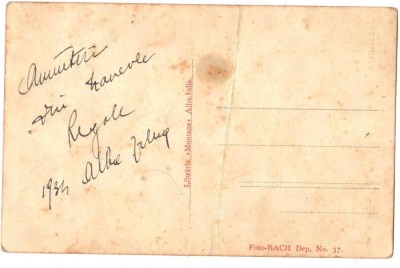 Amintiri
din
Regale
1934 Alba Iulia
Librăria «Monunas» Alba-Iulia.
Foto-BACH Dep. No. 37.